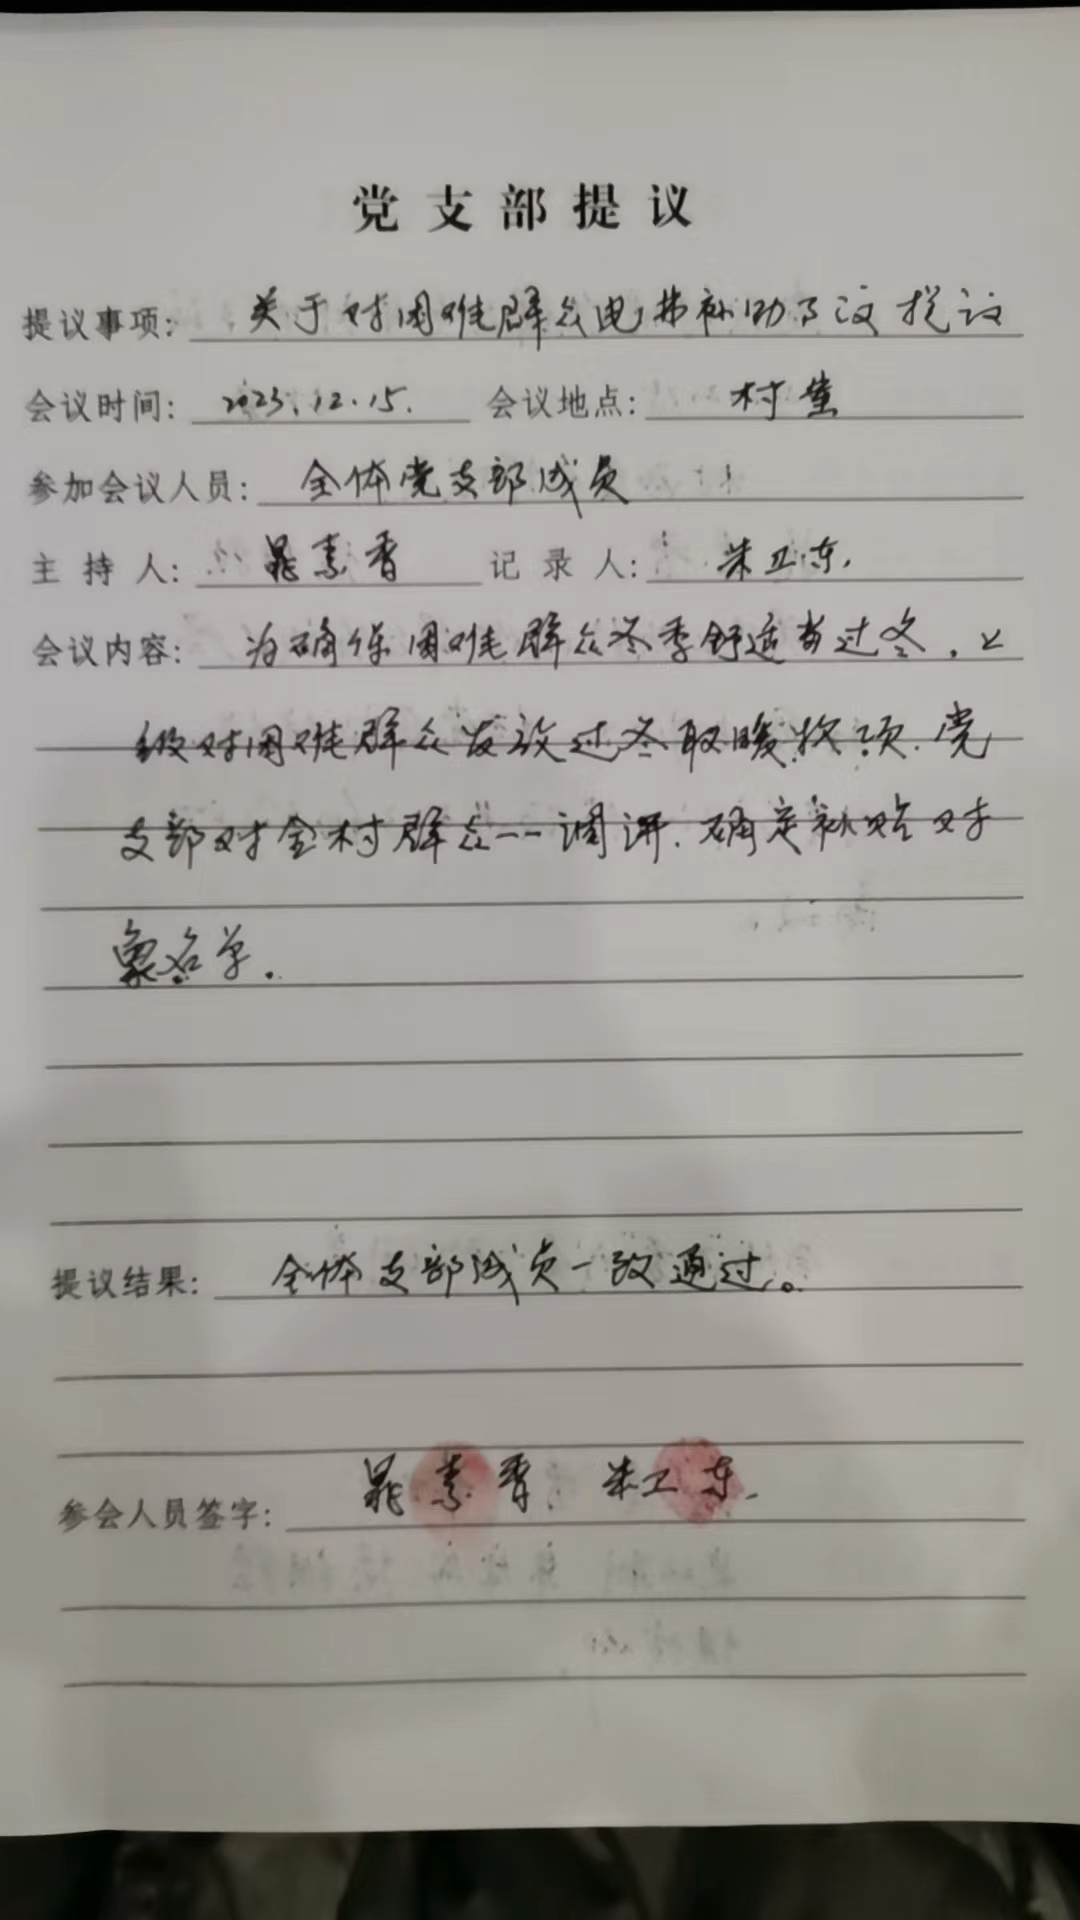 党支部提议
提议事项: 关于对困难群众电费补助的提议
会议时间: 2023.12.15. 会议地点: 村室
参加会议人员: 全体党支部成员
主持人: 晁素香 记录人: 朱卫东.
会议内容: 为确保困难群众冬季舒适过冬,上
级对困难群众发放过冬取暖款项.党
支部对全村群众一一调评.确定补贴对
象名单.
提议结果: 全体支部成员一致通过。
参会人员签字: 晁素香 朱卫东.